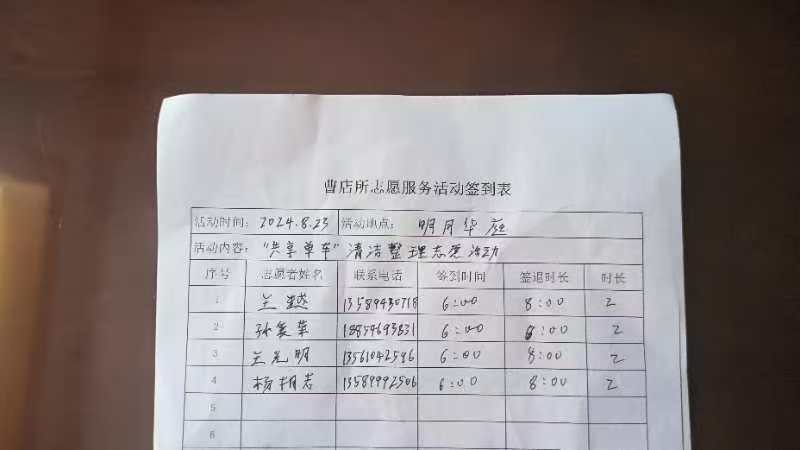 曹店所志愿服务活动签到表
活动时间: 2024.8.23 活动地点: 明月华庭
活动内容: "共享单车"清洁整理志愿活动
序号 志愿者姓名 联系电话 签到时间 签退时长 时长
1 兰 13589430718 6:00 8:00 2
2 孙爱华 18854693831 6:00 8:00 2
3 兰光明 13561042596 6:00 8:00 2
4 杨相志 13589992506 6:00 8:00 2
5
6